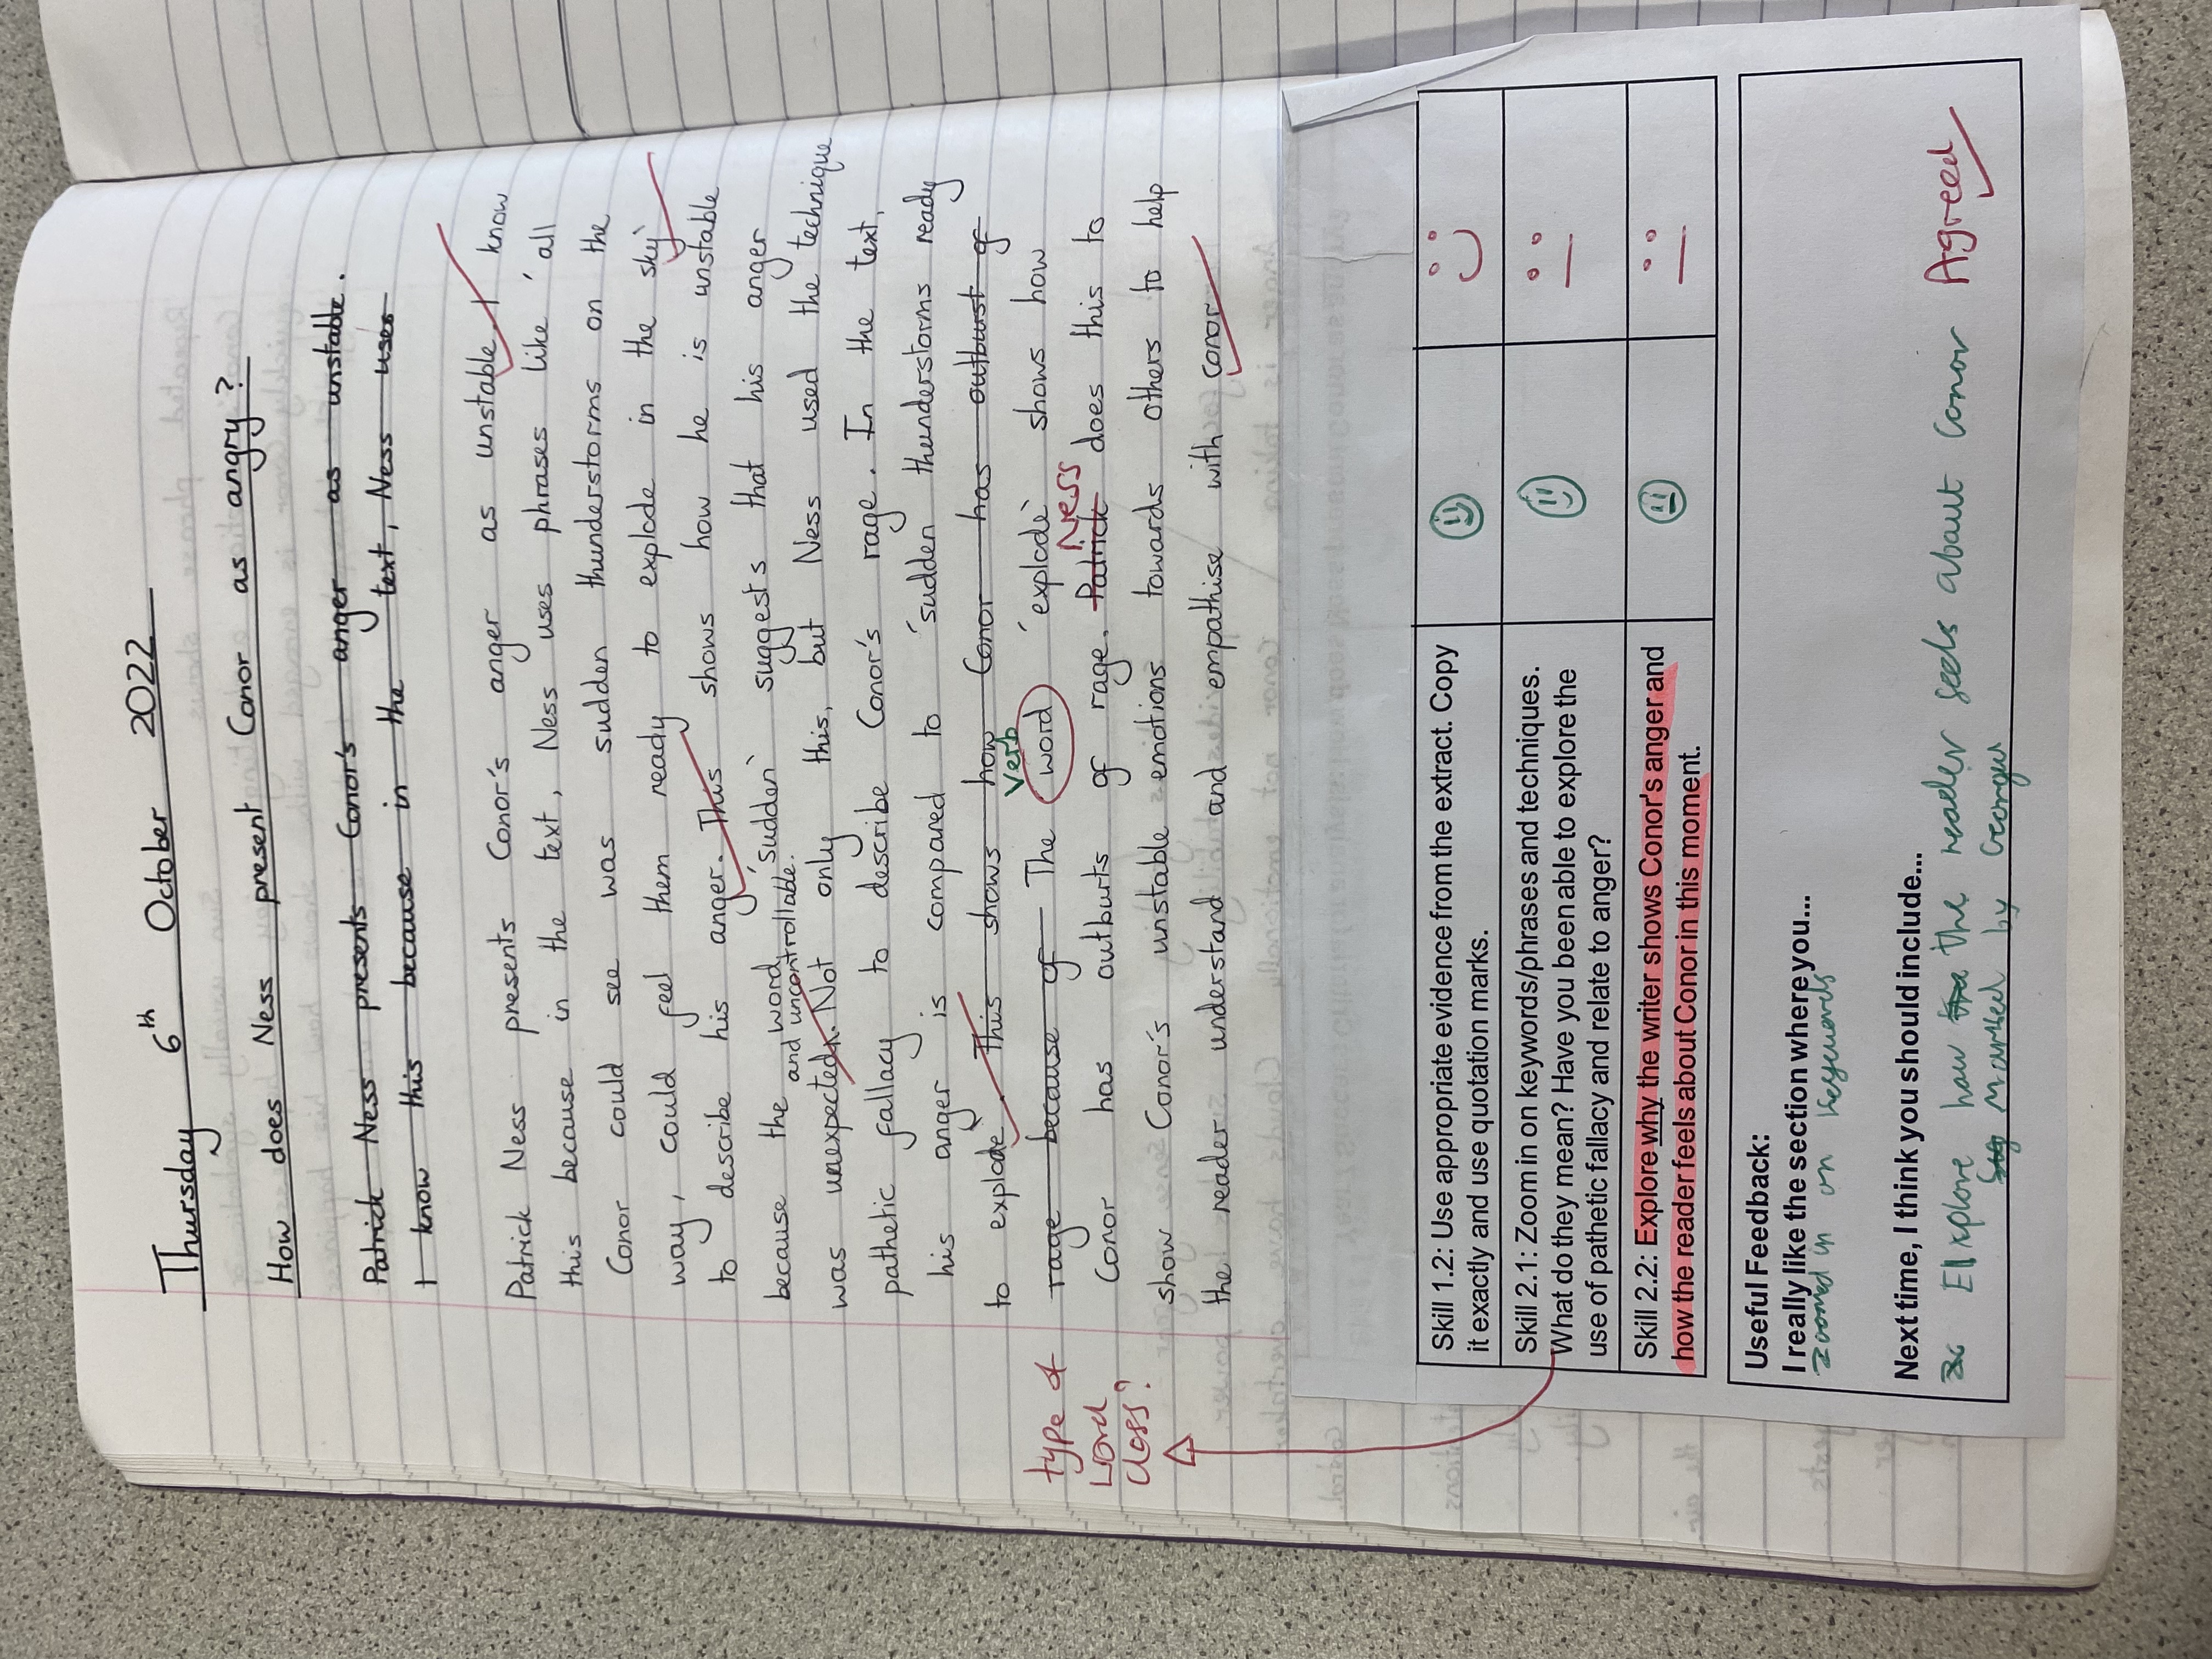 Thursday 6th October 2022
How does Ness present Conor as angry?
Patrick Ness presents Conor's anger as unstable.
I know this because in the text, Ness uses
Patrick Ness presents Conor's anger as unstable. I know
this because in the text, Ness uses phrases like 'all
Conor could see was sudden thunderstorms on the
way, could feel them ready to explode in the sky'
to describe his anger. This shows how he is unstable
because the word 'sudden' suggests that his anger
and uncontrollable.
was unexpected. Not only this, but Ness used the technique
pathetic fallacy to describe Conor's rage. In the text,
his anger is compared to 'sudden thunderstorms ready
to explode'. This shows how Conor has outbust of
rage because of The word 'explode' shows how
verb
Conor has outburts of rage. Patrick does this to
Ness
show Conor's unstable emotions towards others to help
the reader understand and empathise with conor
type of
word
class?
Skill 1.2: Use appropriate evidence from the extract. Copy
it exactly and use quotation marks.
Skill 2.1: Zoom in on keywords/phrases and techniques.
What do they mean? Have you been able to explore the
use of pathetic fallacy and relate to anger?
Skill 2.2: Explore why the writer shows Conor's anger and
how the reader feels about Conor in this moment.
Useful Feedback:
I really like the section where you...
zoomed in on keywords
Next time, I think you should include...
Explore how the reader feels about Conor
Marked by
Agreed